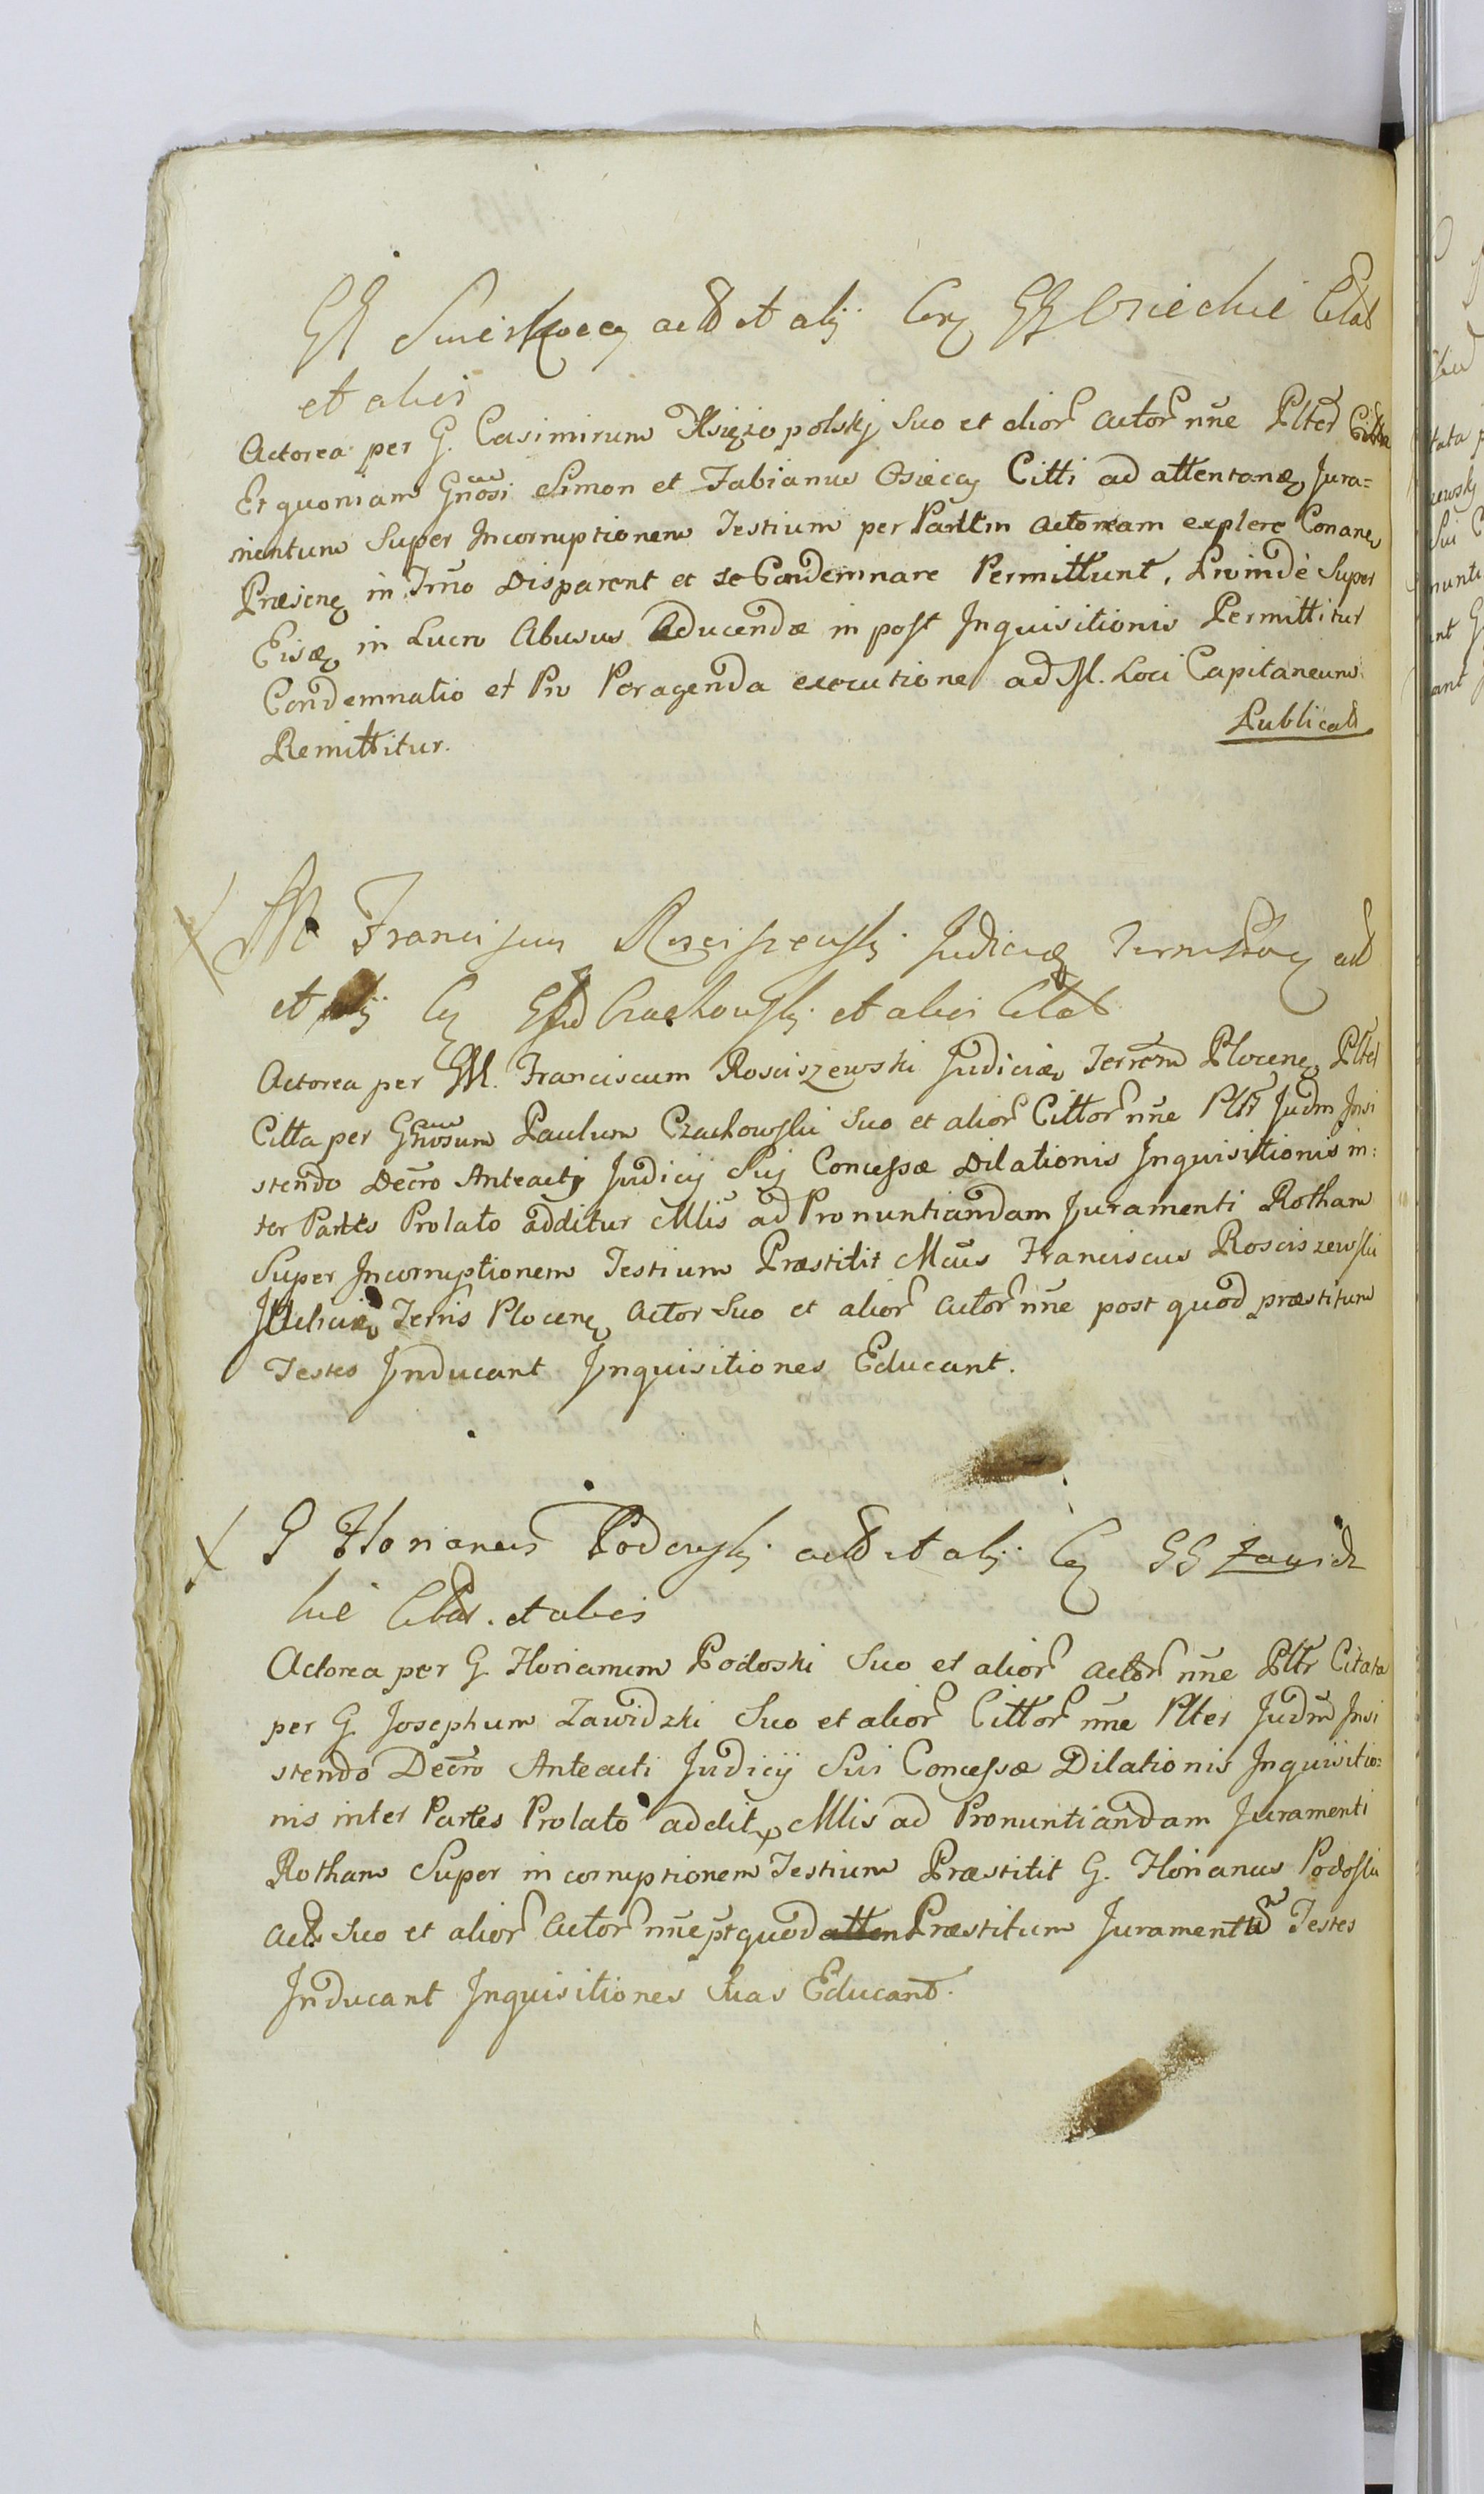 GG Swierkocey act et alij Con GG Osieckie Citat
et alios
Actorea per G. Casimirum Księżopolskj Suo et alior actor nne Plter Citta
Et quoniam Gnosi Simon et Fabianus Osieccy Citti ad attentanȩ Jura=
mentum Super Incorruptionem Testium per Partem actoream explere Conane
Præsenȩ in Trno Disparent et se Condemnare Permittunt, Proinde Super
Eisdȩ in Lucro Abusus Educendæ in post Inquisitionis Permittitur
Condemnatio et Pro Peragenda executione ad M. Loci Capitaneum
Remittitur.
Publicat
M Franciscus Rosciszewski Judicis act
et alij Con Czachowski et alios Citat
Actorea per M. Franciscum Rosciszewski Judicem Terrem Plocens Plter
Citta per Gnosum Paulum Czachowski Suo et alior Cittor nne Pltr Judm Insi
stendo Decro Anteacti Judicij Suj Concessæ Dilationis Inquisitionis in:
ter Partes Prolato additur Mlis ad Pronuntiandam Juramenti Rotham
Super Incorruptionem Testium Præstitit Mcus Franciscus Rosciszewski
Judicis Terris Plocens Actor Suo et alior actor nne post quod præstitum
Testes Inducant Inquisitiones Educant.
G Florianus Podoski act et alij Con GG Zawidz
kie Citat. et alios
Actorea per G. Florianum Podoski Suo et alior actor nne Pltr Citata
per G. Josephum Zawidzki Suo et alior Cittor nne Plter Judm Insi
stendo Decro Anteacti Judicij Sui Concessæ Dilationis Inquisitio:
nis inter Partes Prolato addit Mlis ad Pronuntiandam Juramenti
Rotham Super incorruptionem Testium Præstitit G. Florianus Podoski
act Suo et alior Actor nne pt quod Præstitum Juramentu Testes
Inducant Inquisitiones Suas Educant.